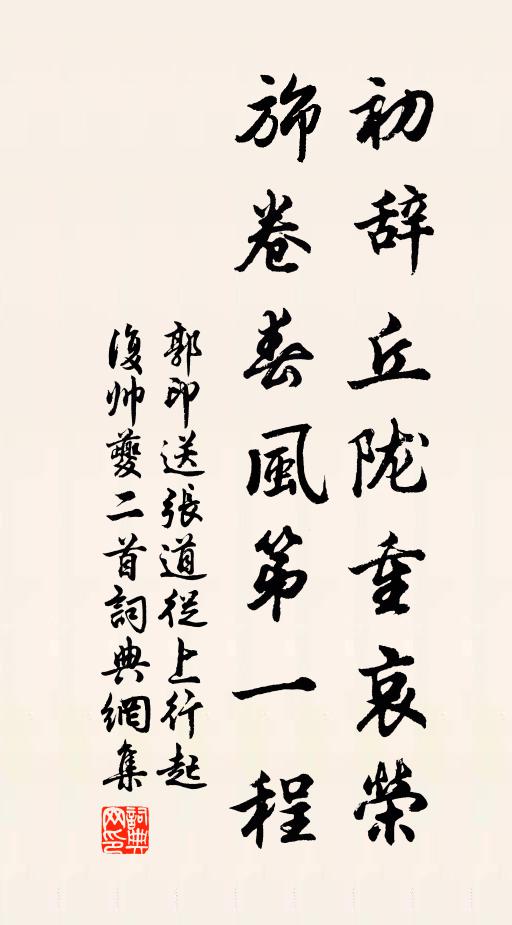 初辞丘陇重哀榮
旆卷春風第一程
郭印送張道從上行起
復帅夔二首詞典網集
詞典网印